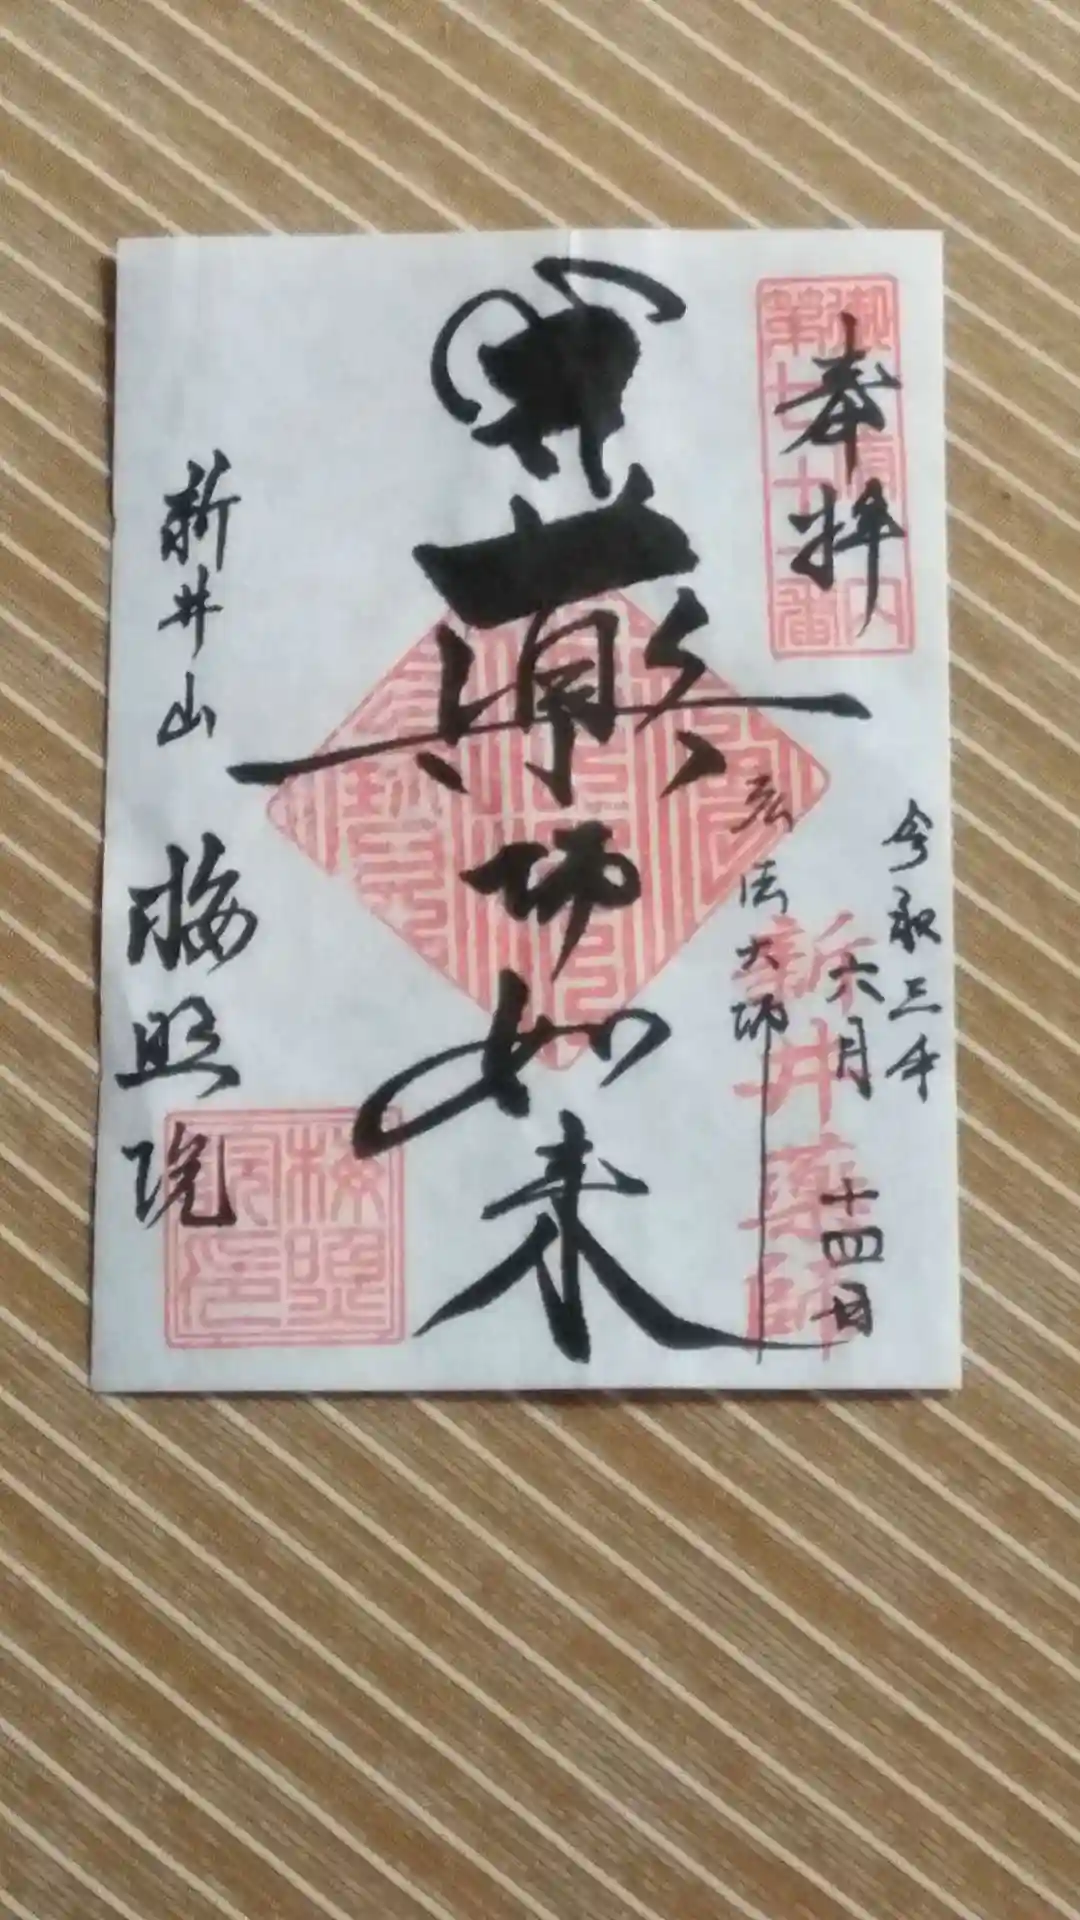 奉拝
御府内
第七十一番
令和三年
六月
十四日
新井薬師
弘法大師
薬師如来
新井山
梅照院
梅照
院印